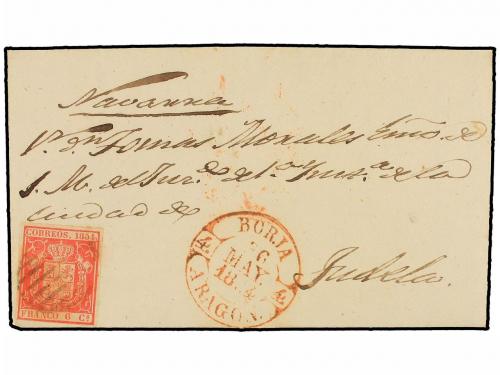 Navarra
Dn Tomas Morales Essno de
S. M. del Juzdo de 1a Insa de la
Ciudad de
Tudela.
CORREOS. 1854.
FRANCO 6 Cs
BORJA
26
MAY
1854
ARAGON.